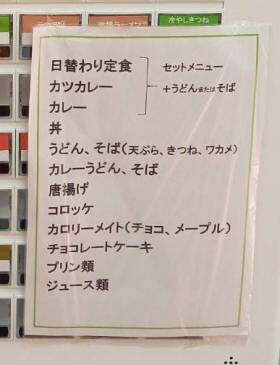 冷やしきつね
日替わり定食 セットメニュー
カツカレー +うどんまたはそば
カレー
丼
うどん、そば(天ぷら、きつね、ワカメ)
カレーうどん、そば
唐揚げ
コロッケ
カロリーメイト(チョコ、メープル)
チョコレートケーキ
プリン類
ジュース類